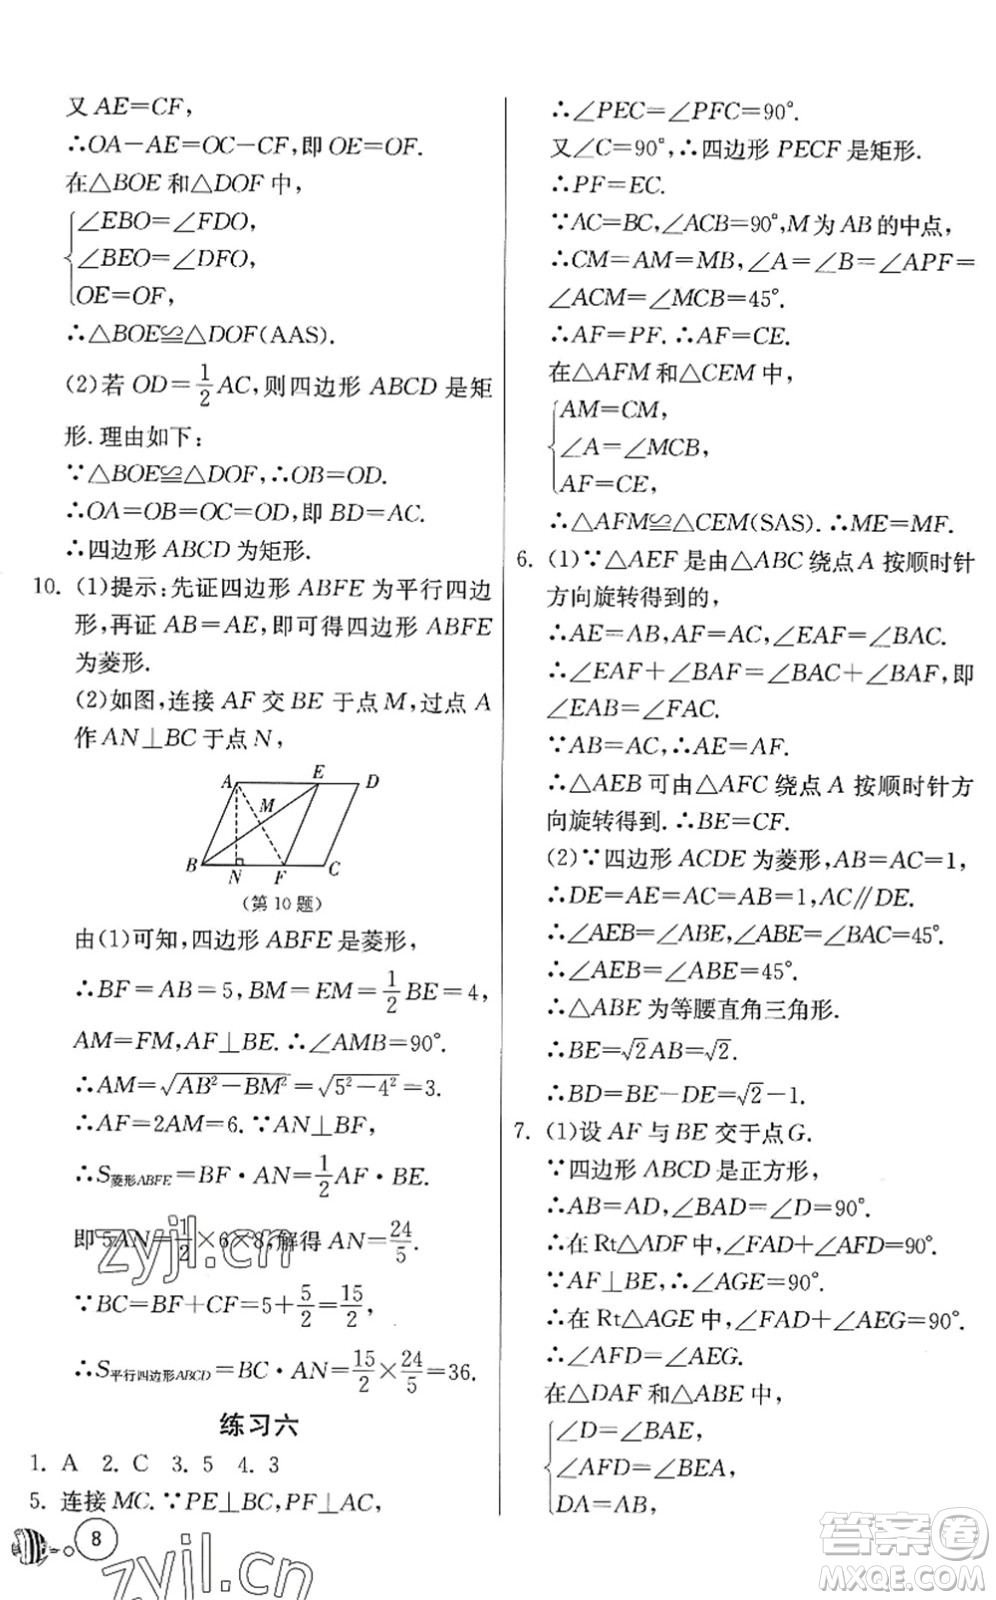 又 AE=CF,
∴OA-AE=OC-CF,即 OE=OF.
在△BOE 和△DOF 中,
∠EBO=∠FDO,
∠BEO=∠DFO,
OE=OF,
∴△BOE≌△DOF(AAS).
(2)若 OD=1/2AC,则四边形 ABCD 是矩
形.理由如下:
∵△BOE≌△DOF,∴OB=OD.
∴OA=OB=OC=OD,即 BD=AC.
∴四边形 ABCD 为矩形.
10. (1)提示:先证四边形 ABFE 为平行四边
形,再证 AB=AE,即可得四边形 ABFE
为菱形.
(2)如图,连接 AF 交 BE 于点 M,过点 A
作 AN⊥BC 于点 N,
A E D
M
B N F C
(第 10 题)
由(1)可知,四边形 ABFE 是菱形,
∴BF=AB=5,BM=EM=1/2BE=4,
AM=FM,AF⊥BE.∴∠AMB=90°.
∴AM=√(AB²-BM²)=√(5²-4²)=3.
∴AF=2AM=6.∵AN⊥BF,
∴S菱形ABFE=BF·AN=1/2AF·BE.
即 5AN=1/2×6×8,解得 AN=24/5.
∵BC=BF+CF=5+5/2=15/2,
∴S平行四边形ABCD=BC·AN=15/2×24/5=36.
练习六
1. A 2. C 3. 5 4. 3
5. 连接 MC.∵PE⊥BC,PF⊥AC,
8
∴∠PEC=∠PFC=90°.
又∠C=90°,∴四边形 PECF 是矩形.
∴PF=EC.
∵AC=BC,∠ACB=90°,M 为 AB 的中点,
∴CM=AM=MB,∠A=∠B=∠APF=
∠ACM=∠MCB=45°.
∴AF=PF.∴AF=CE.
在△AFM 和△CEM 中,
AM=CM,
∠A=∠MCB,
AF=CE,
∴△AFM≌△CEM(SAS).∴ME=MF.
6. (1)∵△AEF 是由△ABC 绕点 A 按顺时针
方向旋转得到的,
∴AE=AB,AF=AC,∠EAF=∠BAC.
∴∠EAF+∠BAF=∠BAC+∠BAF,即
∠EAB=∠FAC.
∵AB=AC,∴AE=AF.
∴△AEB 可由△AFC 绕点 A 按顺时针方
向旋转得到.∴BE=CF.
(2)∵四边形 ACDE 为菱形,AB=AC=1,
∴DE=AE=AC=AB=1,AC∥DE.
∴∠AEB=∠ABE,∠ABE=∠BAC=45°.
∴∠AEB=∠ABE=45°.
∴△ABE 为等腰直角三角形.
∴BE=√2AB=√2.
∴BD=BE-DE=√2-1.
7. (1)设 AF 与 BE 交于点 G.
∵四边形 ABCD 是正方形,
∴AB=AD,∠BAD=∠D=90°.
∴在 Rt△ADF 中,∠FAD+∠AFD=90°.
∵AF⊥BE,∴∠AGE=90°.
∴在 Rt△AGE 中,∠FAD+∠AEG=90°.
∴∠AFD=∠AEG.
在△DAF 和△ABE 中,
∠D=∠BAE,
∠AFD=∠BEA,
DA=AB,
zyjl.cn
zyjl.cn
答案圈
MXQE.COM